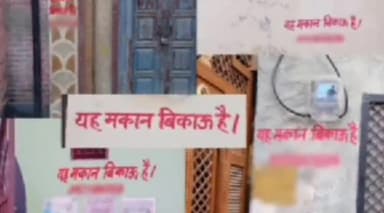 यह मकान बिकाऊ है।
यह मकान बिकाऊ है।
यह मकान बिकाऊ है।
यह मकान बिकाऊ है।